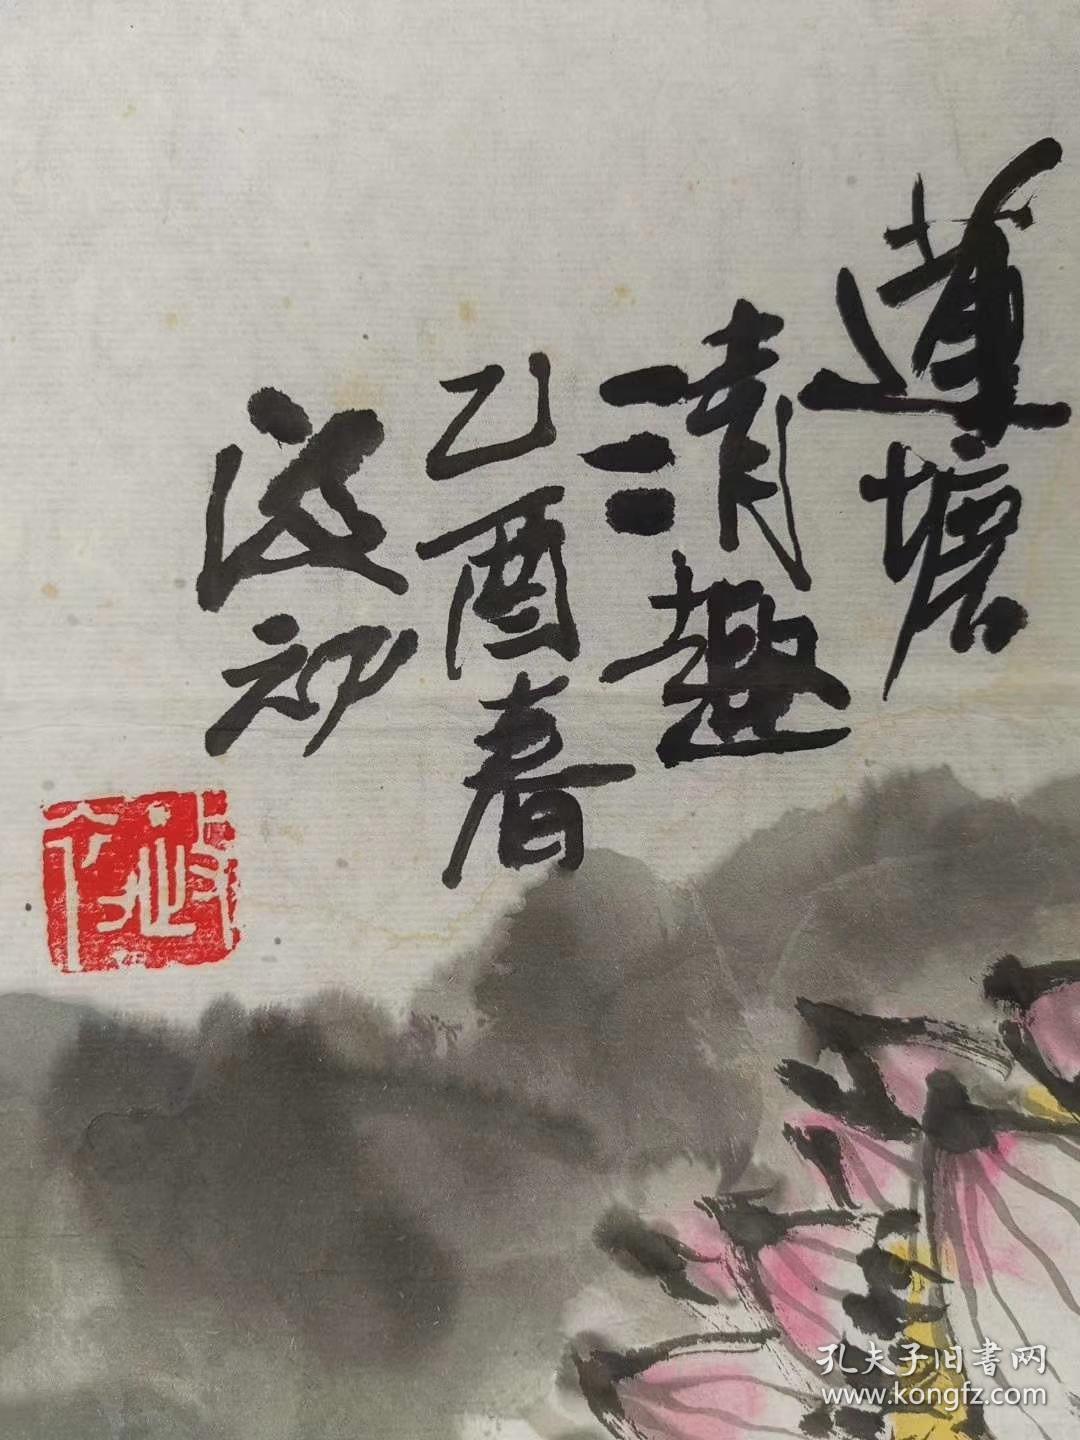 莲塘
清趣
乙酉春
孔夫子旧书网
www.kongfz.com